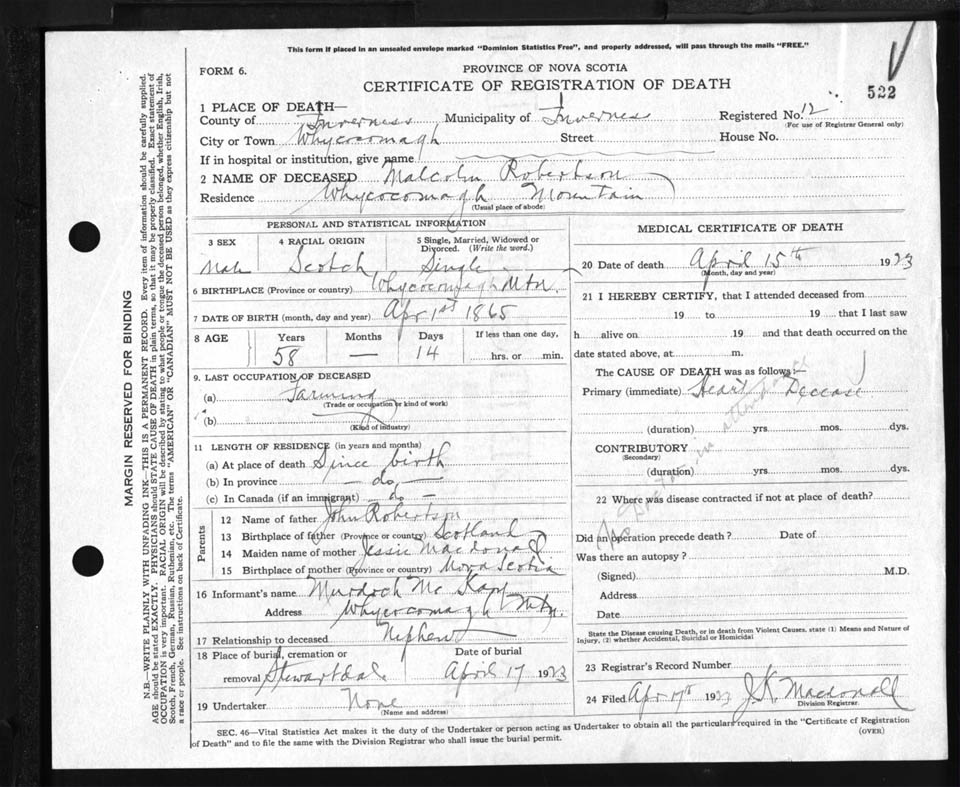 This form if placed in an unsealed envelope marked "Dominion Statistics Free", and properly addressed, will pass through the mails "FREE."
FORM 6.
PROVINCE OF NOVA SCOTIA
CERTIFICATE OF REGISTRATION OF DEATH
522
1 PLACE OF DEATH—
County of Inverness Municipality of Inverness Registered No. 12
(For use of Registrar General only)
City or Town Whycocomagh Street House No.
If in hospital or institution, give name
2 NAME OF DECEASED Malcolm Robertson
Residence Whycocomagh Mountain
(Usual place of abode)
PERSONAL AND STATISTICAL INFORMATION
3 SEX 4 RACIAL ORIGIN 5 Single, Married, Widowed or Divorced. (Write the word.)
Male Scotch Single
6 BIRTHPLACE (Province or country) Whycocomagh Mtn.
7 DATE OF BIRTH (month, day and year) Apr 1st 1865
8 AGE Years Months Days If less than one day,
58 — 14 hrs. or min.
9. LAST OCCUPATION OF DECEASED
(a) Farming
(Trade or occupation or kind of work)
(b)
(Kind of industry)
11 LENGTH OF RESIDENCE (in years and months)
(a) At place of death Since birth
(b) In province — do —
(c) In Canada (if an immigrant) — do —
Parents
12 Name of father John Robertson
13 Birthplace of father (Province or country) Scotland
14 Maiden name of mother Jessie Macdonald
15 Birthplace of mother (Province or country) Nova Scotia
16 Informant's name Murdoch Mc
Address Whycocomagh Mtn.
17 Relationship to deceased Nephew
18 Place of burial, cremation or removal Stewartdale Date of burial April 17 1923
19 Undertaker None
(Name and address)
MEDICAL CERTIFICATE OF DEATH
20 Date of death April 15th 1923
(Month, day and year)
21 I HEREBY CERTIFY, that I attended deceased from
19 to 19 that I last saw
h alive on 19 and that death occurred on the
date stated above, at m.
The CAUSE OF DEATH was as follows:-
Primary (immediate) Heart Decease
(duration) yrs. mos. dys.
CONTRIBUTORY
(Secondary)
(duration) yrs. mos. dys.
22 Where was disease contracted if not at place of death?
Did an operation precede death? Date of
Was there an autopsy?
(Signed) M.D.
Address
Date
State the Disease causing Death, or in death from Violent Causes, state (1) Means and Nature of
Injury, (2) whether Accidental, Suicidal or Homicidal
23 Registrar's Record Number
24 Filed Apr 17th 1923 J.K. Macdonald
Division Registrar.
SEC. 46—Vital Statistics Act makes it the duty of the Undertaker or person acting as Undertaker to obtain all the particulars required in the "Certificate of Registration
of Death" and to file the same with the Division Registrar who shall issue the burial permit.
(OVER)
MARGIN RESERVED FOR BINDING
N.B.—WRITE PLAINLY WITH UNFADING INK—THIS IS A PERMANENT RECORD. Every item of information should be carefully supplied.
AGE should be stated EXACTLY. PHYSICIANS should STATE CAUSE OF DEATH in plain terms, so that it may be properly classified. Exact statement of
OCCUPATION is very important. RACIAL ORIGIN will be described by stating to what people or tongue the deceased person belonged, whether English, Irish,
Scotch, French, German, Russian, Ruthenian, etc. The terms "AMERICAN" or "CANADIAN" MUST NOT BE USED as they express citizenship but not
a race or people. See instructions on back of Certificate.